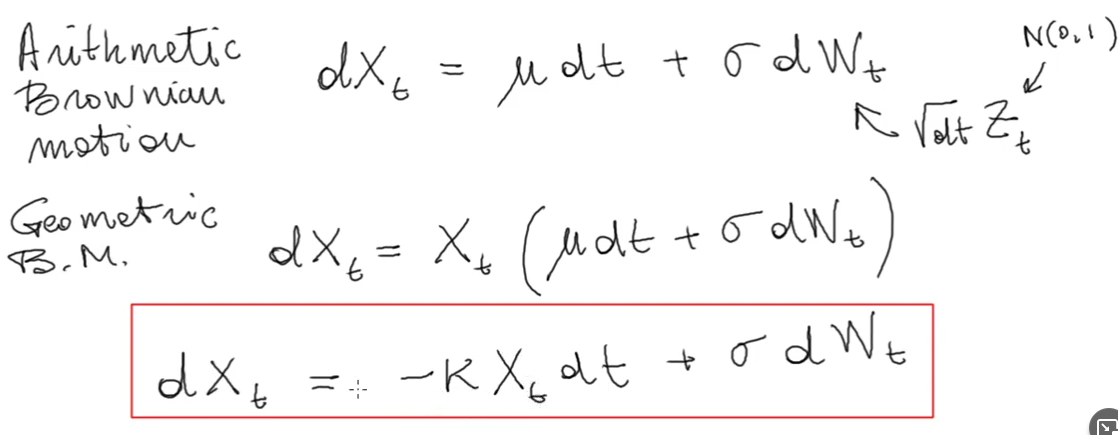 Arithmetic
Brownian
motion
dX_t = μ dt + σ dW_t
N(0,1)
√dt Z_t
Geometric
B.M.
dX_t = X_t (μ dt + σ dW_t)
dX_t = -K X_t dt + σ dW_t